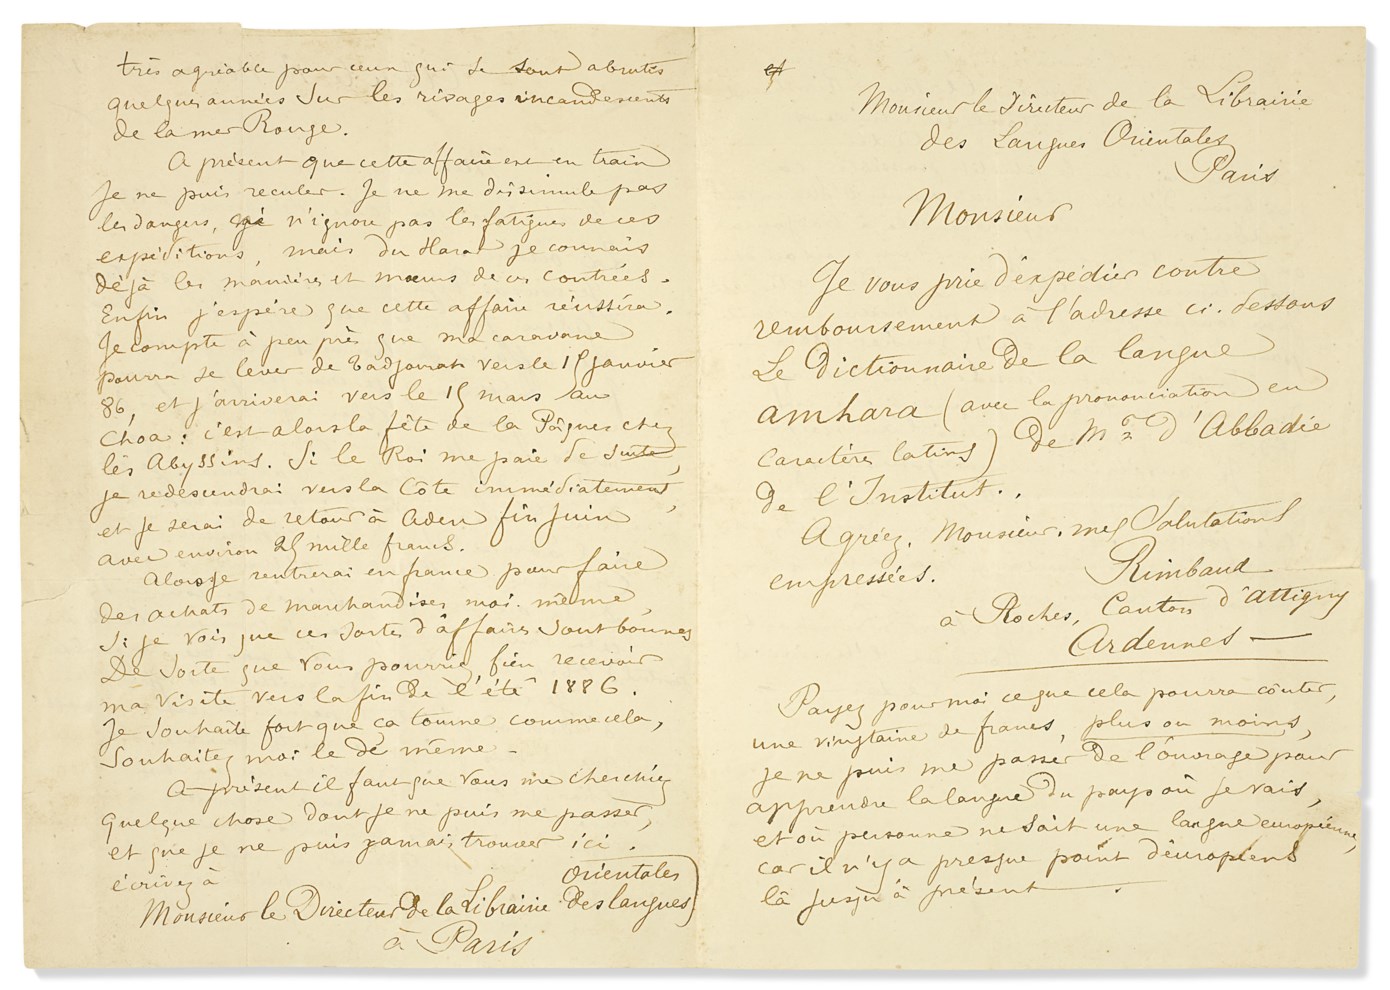 très agréable pour ceux qui se sont abrutis
quelques années sur les rivages incandescents
de la mer Rouge.
A présent que cette affaire est en train
je ne puis reculer. Je ne me dissimule pas
les dangers, je n'ignore pas les fatigues de ces
expéditions, mais du Harar je connais
déjà les manières et mœurs de ces contrées.
Enfin j'espère que cette affaire réussira.
Je compte à peu près que ma caravane
pourra se lever de Tadjourah vers le 15 janvier
86, et j'arriverai vers le 15 mars au
Choa : c'est alors la fête de la Pâques chez
les Abyssins. Si le Roi me paie de suite,
je redescendrai vers la Côte immédiatement,
et je serai de retour à Aden fin juin
avec environ 25 mille francs.
Alors je rentrerai en france pour faire
des achats de marchandises moi-même,
si je vois que ces sortes d'affaires sont bonnes
De sorte que vous pourriez bien recevoir
ma visite vers la fin de l'été 1886.
Je souhaite fort que ça tourne comme cela,
souhaitez moi le de même -
A présent il faut que vous me cherchiez
quelque chose dont je ne puis me passer,
et que je ne puis jamais trouver ici.
écrivez à
Monsieur le Directeur de la Librairie des langues
orientales
à Paris
Monsieur le Directeur de la Librairie
des Langues Orientales
Paris
Monsieur
Je vous prie d'expédier contre
remboursement à l'adresse ci-dessous
Le Dictionnaire de la langue
amhara (avec la prononciation en
caractères latins) De Mr d'Abbadie
de l'Institut..
Agréez, Monsieur, mes Salutations
empressées.
Rimbaud
à Roches, Canton d'Attigny
Ardennes —
Payez pour moi ce que cela pourra coûter,
une vingtaine de francs, plus ou moins,
je ne puis me passer De l'ouvrage pour
apprendre la langue du pays où je vais,
et où personne ne sait une langue européenne,
car il n'y a presque point d'européens
là jusqu'à présent.